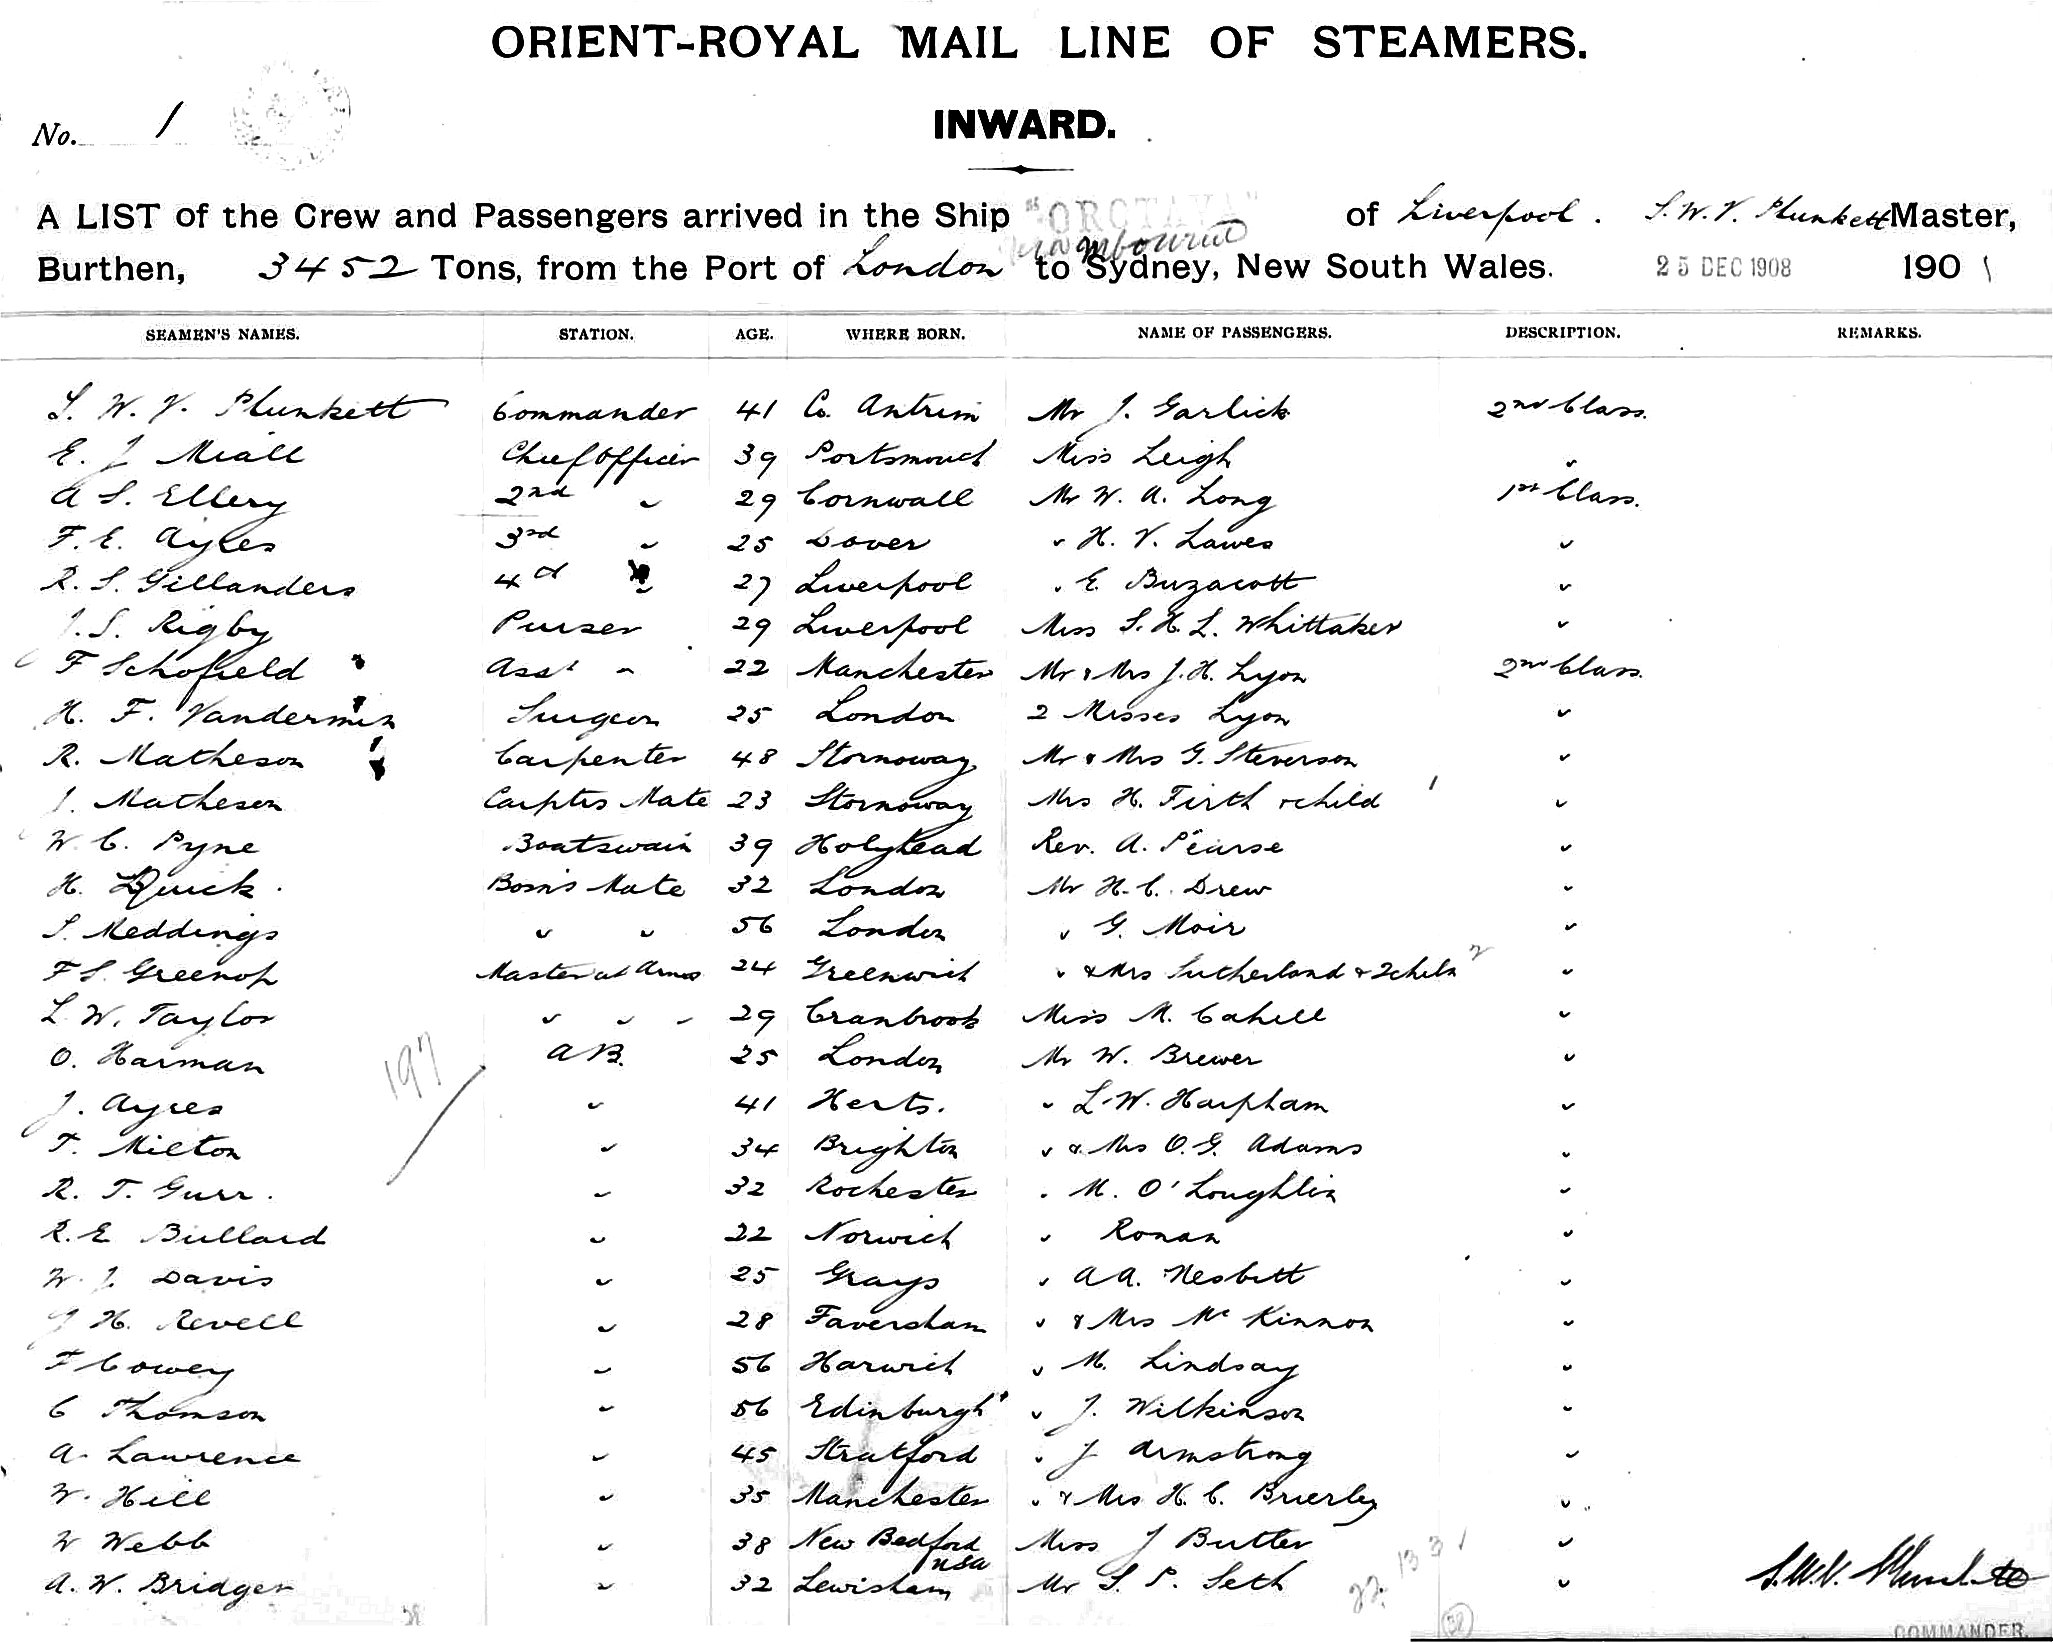 ORIENT-ROYAL MAIL LINE OF STEAMERS.
No. 1
INWARD.
A LIST of the Crew and Passengers arrived in the Ship "OROTAVA" of Liverpool. S. W. V. Plunkett Master,
Burthen, 3452 Tons, from the Port of London to Sydney, New South Wales. 25 DEC 1908 190
SEAMEN'S NAMES. STATION. AGE. WHERE BORN. NAME OF PASSENGERS. DESCRIPTION. REMARKS.
S. W. V. Plunkett Commander 41 Co. Antrim Mr J. Garlick 2nd Class.
E. J Miall Chief Officer 39 Portsmouth Miss Leigh "
A S. Ellery 2nd " 29 Cornwall Mr W. A. Long 1st Class.
F. E. Ayles 3rd " 25 Dover " H. V. Lawes "
R. S. Gillanders 4th " 27 Liverpool " E. Buzacott "
J. S. Rigby Purser 29 Liverpool Miss S. H. L. Whittaker "
F Schofield Asst " 22 Manchester Mr & Mrs J. H. Lyon 2nd Class.
H. F. Vandermin Surgeon 25 London 2 Misses Lyon "
R. Matheson Carpenter 48 Stornoway Mr & Mrs G. Steverson "
J. Matheson Carptrs Mate 23 Stornoway Mrs H. Firth & child 1 "
W. C. Pyne Boatswain 39 Holyhead Rev. A. Pearse "
H. Quick. Bosns Mate 32 London Mr H. C. Drew "
S. Meddings " " 56 London " G. Moir "
F S. Greenop Master at Arms 24 Greenwich " & Mrs Sutherland & 2 chiln 2 "
L. W. Taylor " " " 29 Cranbrook Miss M. Cahill "
O. Harman AB. 25 London Mr W. Brewer "
197
J. Ayres " 41 Herts. " L. W. Harpham "
T. Milton " 34 Brighton " & Mrs O. G. Adams "
R. T. Gurr. " 32 Rochester " M. O'Loughlin "
R. E Bullard " 22 Norwich " Ronan "
W. J. Davis " 25 Grays " A A. Nesbitt "
J H. Revell " 28 Faversham " & Mrs McKinnon "
F Cowey " 56 Harwich " M. Lindsay "
C Thomson " 56 Edinburgh " J. Wilkinson "
A. Lawrence " 45 Stratford " J Armstrong "
W. Hill " 35 Manchester " & Mrs H. C. Brierley "
W Webb " 38 New Bedford USA Miss J Butler "
A. W. Bridger " 32 Lewisham Mr S. P. Seth "
S.W.V. Plunkett
COMMANDER.